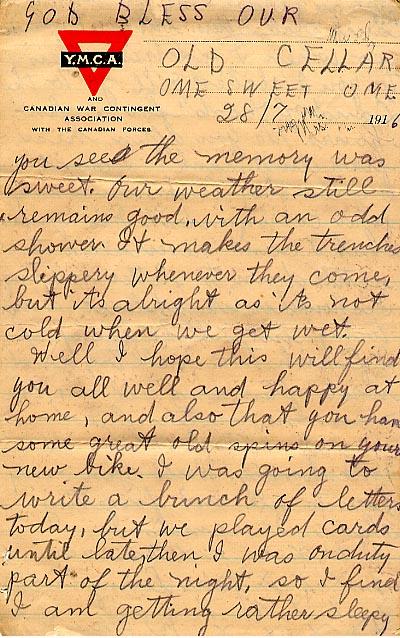 GOD BLESS OUR
OLD CELLAR
OME SWEET OME
Y.M.C.A.
AND
CANADIAN WAR CONTINGENT
ASSOCIATION
WITH THE CANADIAN FORCES
28/7 1916
you see the memory was
sweet. Our weather still
remains good, with an odd
shower. It makes the trenches
sleppery whenever they come,
but its alright as its not
cold when we get wet.
Well I hope this will find
you all well and happy at
home, and also that you have
some great old spins on your
new bike. I was going to
write a bunch of letters
today, but we played cards
until late, then I was on duty
part of the night, so I find
I am getting rather sleepy